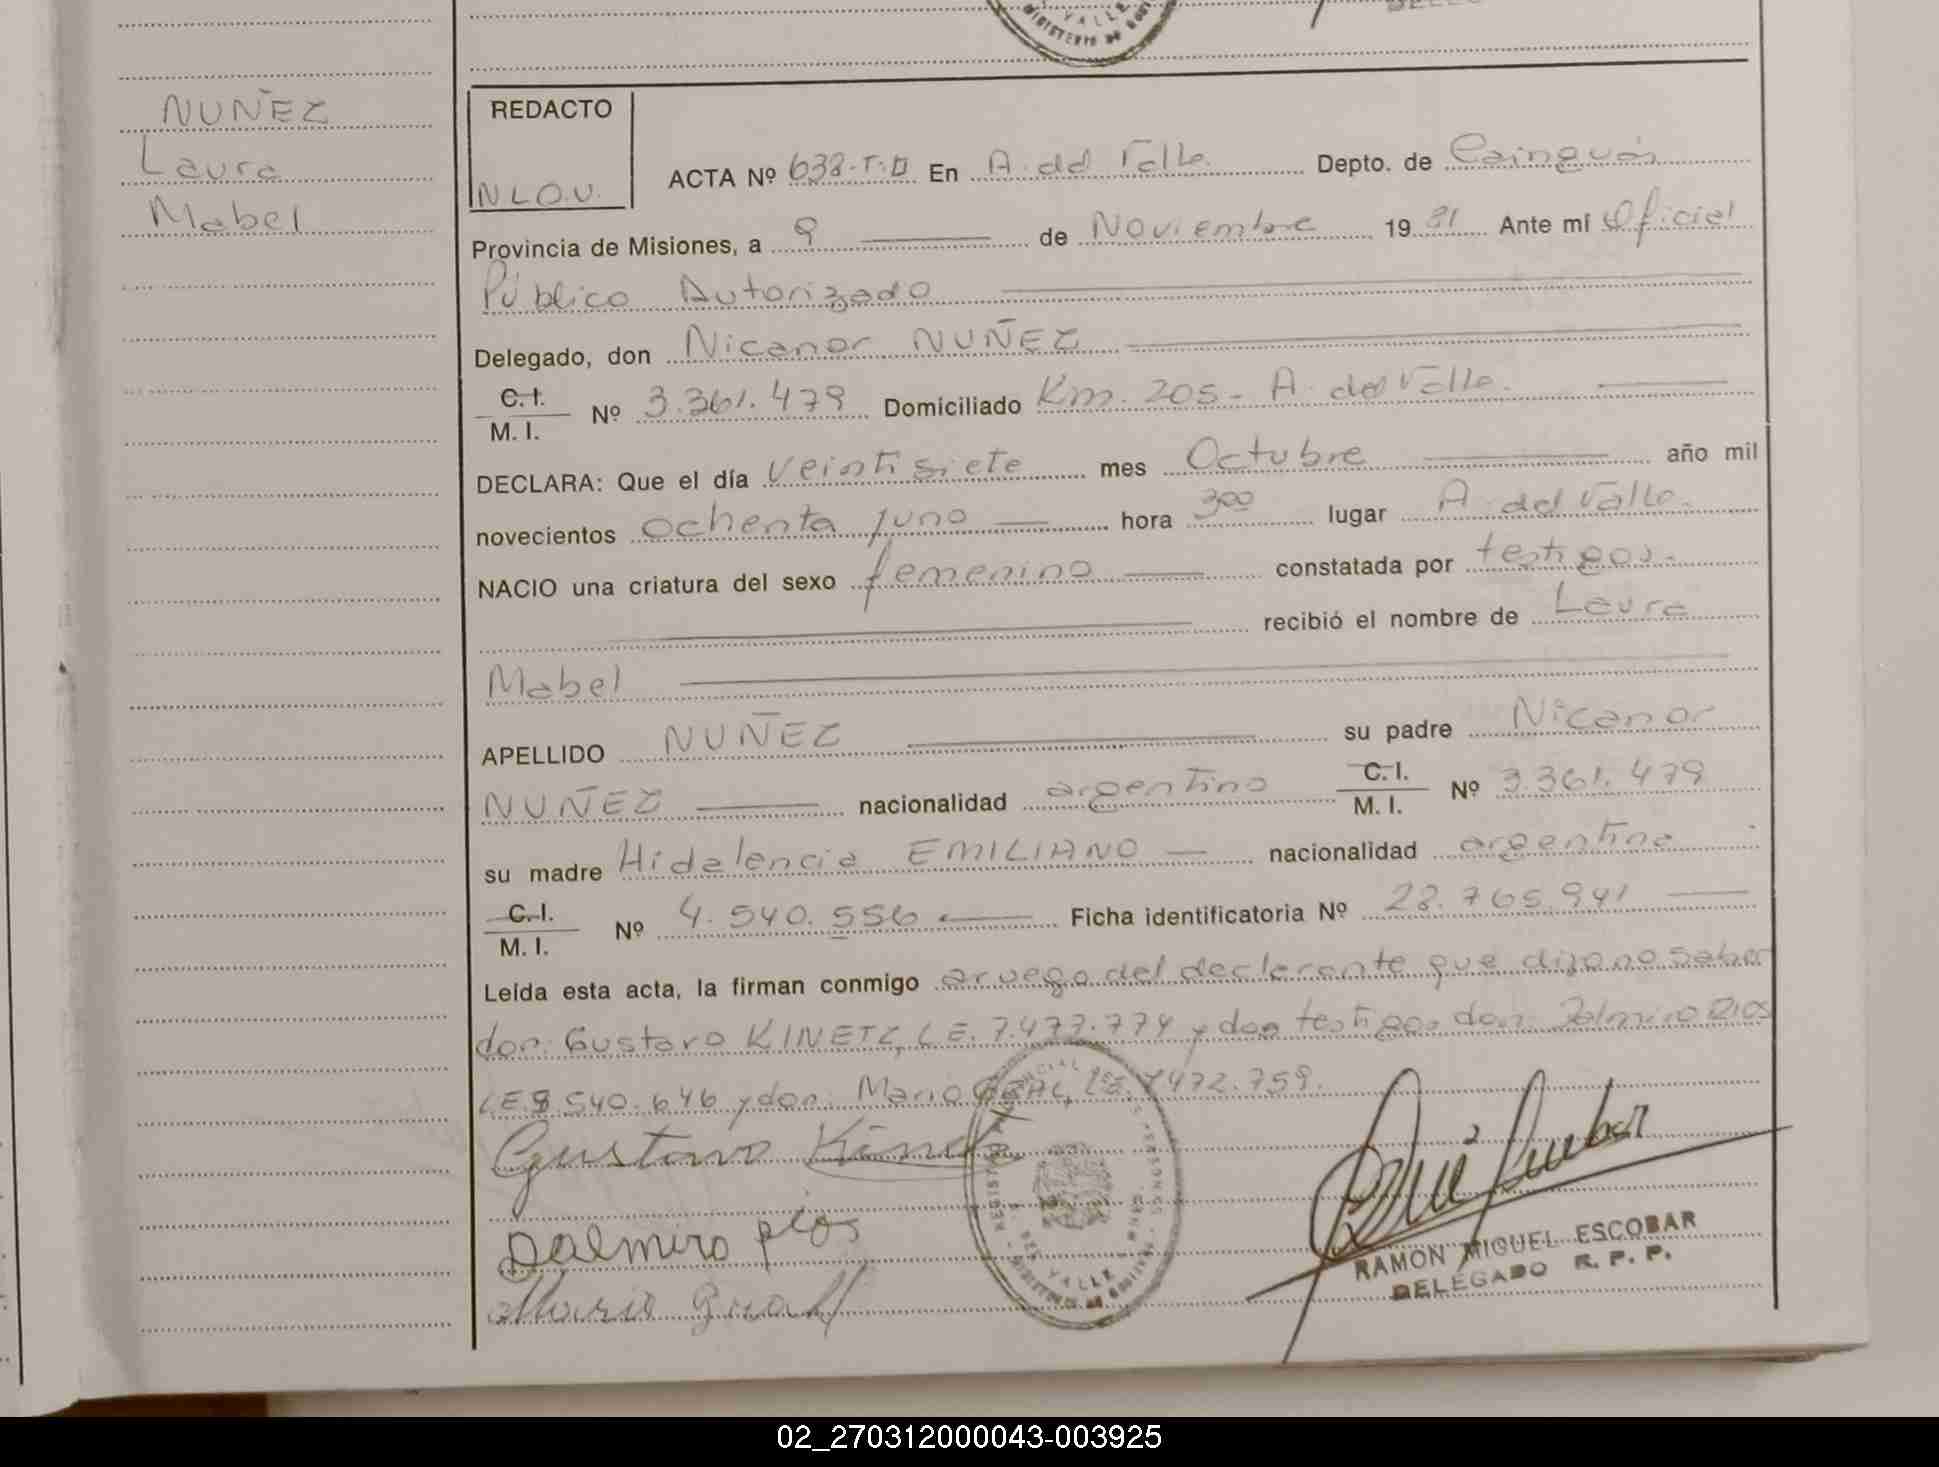 NUÑEZ
Laura
Mabel
REDACTO
N.L.O.V.
ACTA Nº 638-T·II En A. del Valle. Depto. de Cainguás
Provincia de Misiones, a 9 de Noviembre 19 81 Ante mí Oficial
Público Autorizado
Delegado, don Nicanor NUÑEZ
C. I.
M. I.
Nº 3.361.479 Domiciliado Km. 205 - A. del Valle.
DECLARA: Que el día veintisiete mes Octubre año mil
novecientos ochenta yuno hora 300 lugar A. del Valle.
NACIO una criatura del sexo femenino constatada por testigos.
recibió el nombre de Laura
Mabel
APELLIDO NUÑEZ su padre Nicanor
NUÑEZ nacionalidad argentino C. I. M. I. Nº 3.361.479
su madre Hidelencia EMILIANO nacionalidad argentina
C. I.
M. I.
Nº 4.540.556 Ficha identificatoria Nº 28.765.941
Leída esta acta, la firman conmigo aruego del declarante que dijo no saber
don: Gustavo KINETZ, L.E. 7.477.774 y dos testigos don: Dalmiro RIOS
L.E. 8.540.646 y don: Mario L.E. 7472.759.
Gustavo
Dalmiro Rios
Mario
DEL VALLE
RAMON MIGUEL ESCOBAR
DELEGADO R. P. P.
02_270312000043-003925